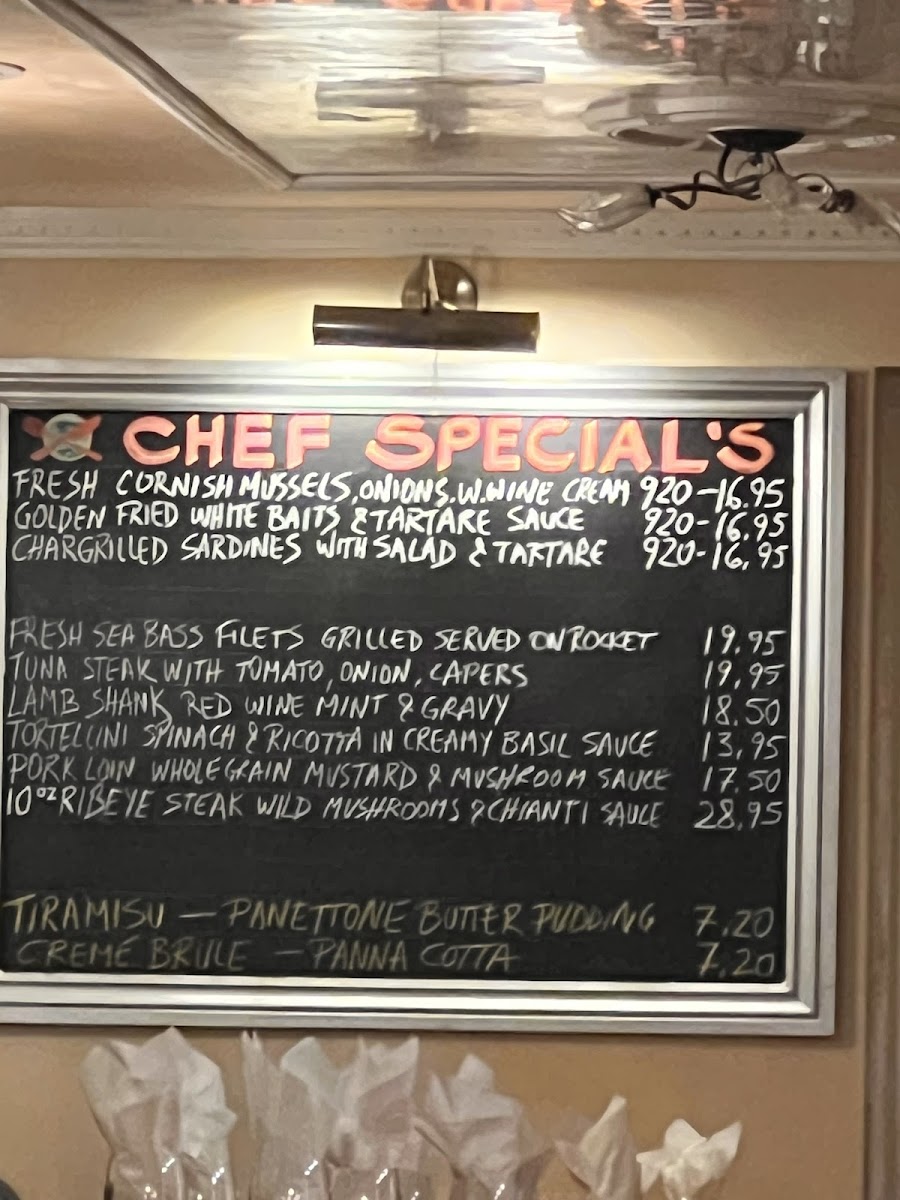 CHEF SPECIAL'S
FRESH CORNISH MUSSELS, ONIONS, W.WINE CREAM 920-16.95
GOLDEN FRIED WHITE BAITS & TARTARE SAUCE 920-16.95
CHARGRILLED SARDINES WITH SALAD & TARTARE 920-16,95
FRESH SEA BASS FILETS GRILLED SERVED ON ROCKET 19.95
TUNA STEAK WITH TOMATO, ONION, CAPERS 19,95
LAMB SHANK RED WINE MINT & GRAVY 18.50
TORTELLINI SPINACH & RICOTTA IN CREAMY BASIL SAUCE 13,95
PORK LOIN WHOLEGRAIN MUSTARD & MUSHROOM SAUCE 17.50
10oz RIBEYE STEAK WILD MUSHROOMS & CHIANTI SAUCE 28.95
TIRAMISU — PANETTONE BUTTER PUDDING 7.20
CREMÉ BRULE — PANNA COTTA 7.20